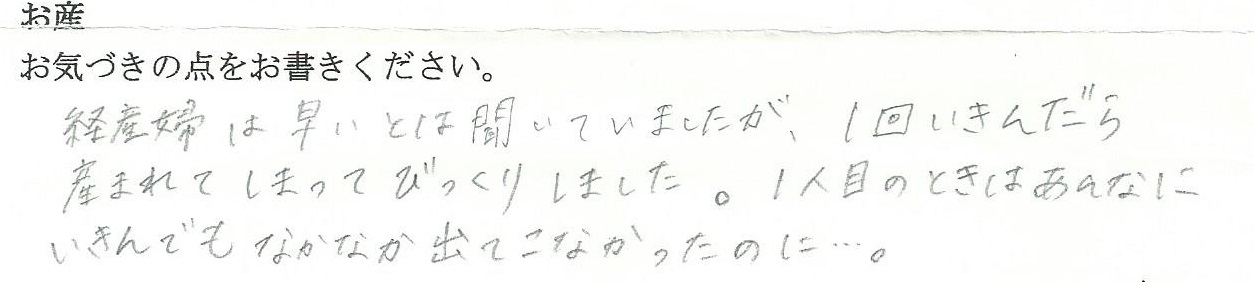 お産
お気づきの点をお書きください。
経産婦は早いとは聞いていましたが、1回いきんだら
産まれてしまってびっくりしました。1人目のときはあんなに
いきんでもなかなか出てこなかったのに…。